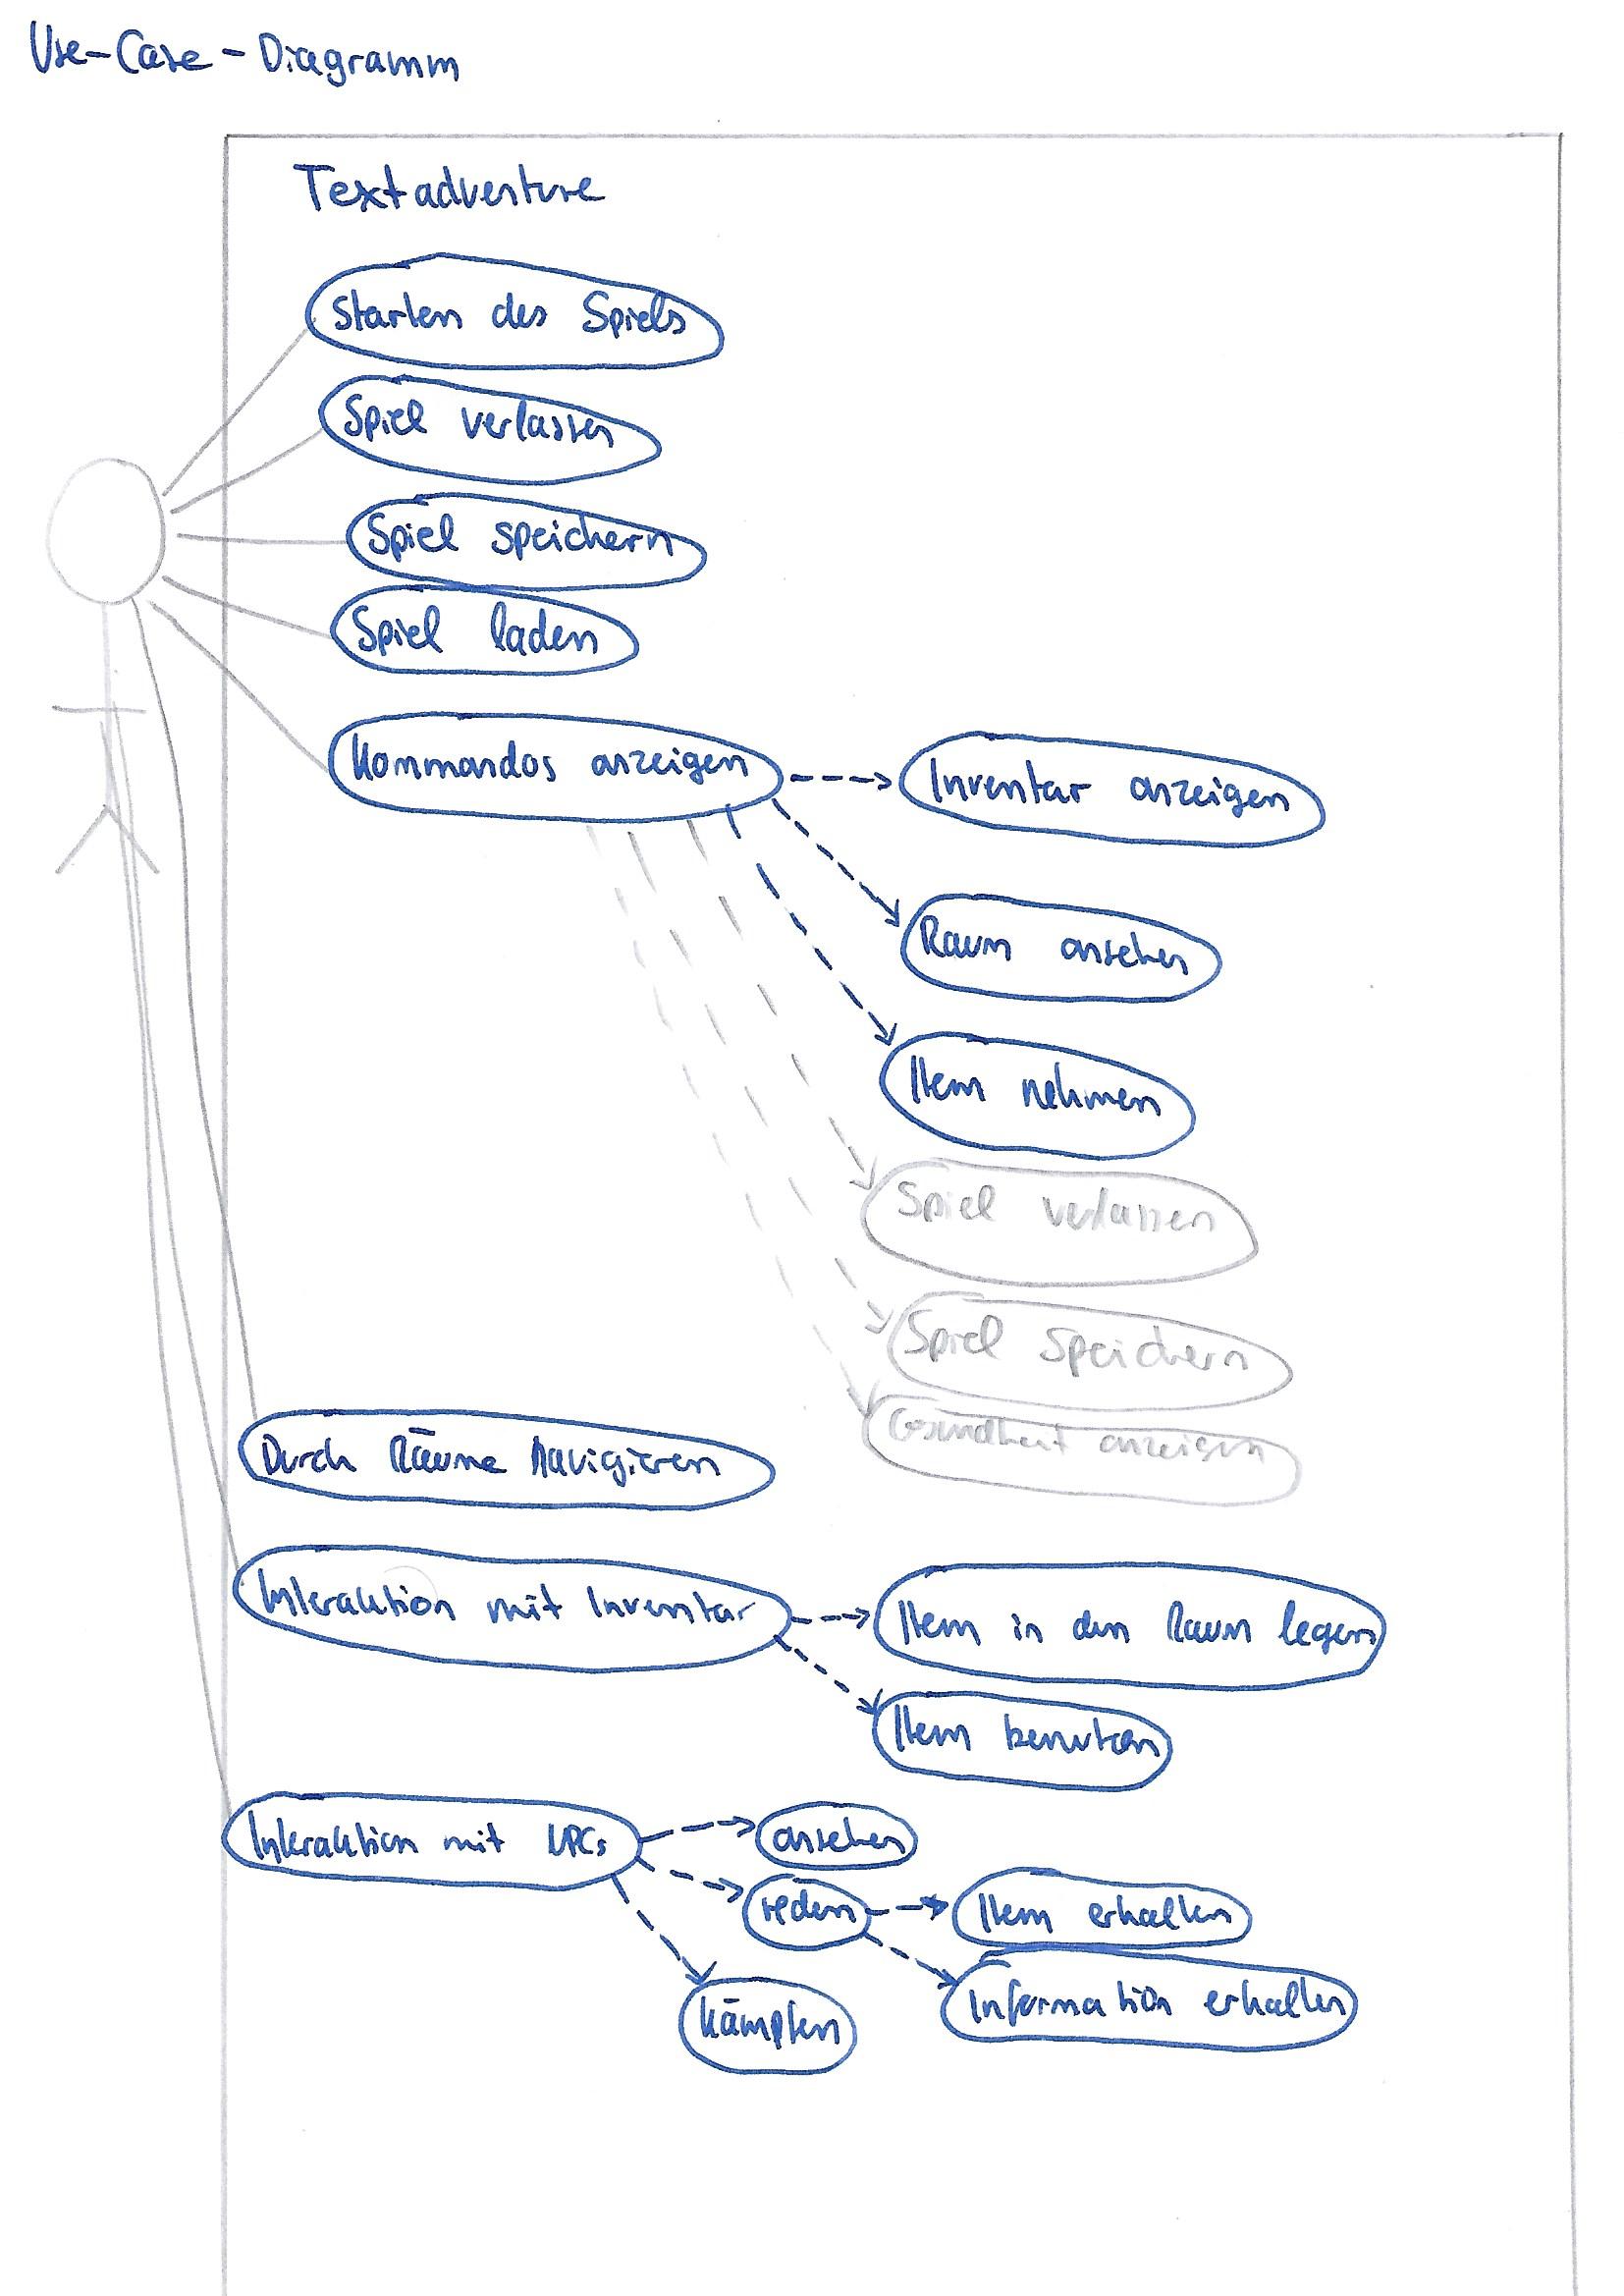 Use-Case-Diagramm
Textadventure
Starten des Spiels
Spiel verlassen
Spiel speichern
Spiel laden
Kommandos anzeigen
Inventar anzeigen
Raum ansehen
Item nehmen
Spiel verlassen
Spiel speichern
Gesundheit anzeigen
Durch Räume Navigieren
Interaktion mit Inventar
Item in den Raum legen
Item benutzen
Interaktion mit NPCs
ansehen
reden
Item erhalten
Information erhalten
kämpfen